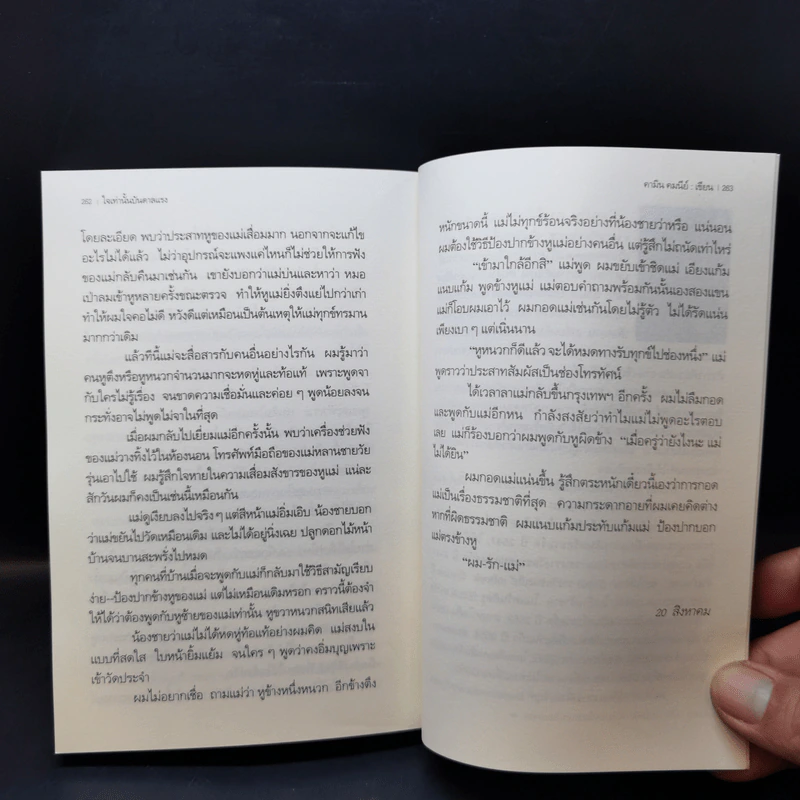 262 | ใจเท่านั้นบันดาลแรง
โดยละเอียด พบว่าประสาทหูของแม่เสื่อมมาก นอกจากจะแก้ไข
อะไรไม่ได้แล้ว ไม่ว่าอุปกรณ์จะแพงแค่ไหนก็ไม่ช่วยให้การฟัง
ของแม่กลับคืนมาเช่นกัน เขายังบอกว่าแม่บ่นและหาว่า หมอ
เป่าลมเข้าหูหลายครั้งขณะตรวจ ทำให้หูแม่ยิ่งตึงแย่ไปกว่าเก่า
ทำให้ผมใจคอไม่ดี หวังดีแต่เหมือนเป็นต้นเหตุให้แม่ทุกข์ทรมาน
มากกว่าเดิม
แล้วทีนี้แม่จะสื่อสารกับคนอื่นอย่างไรกัน ผมรู้มาว่า
คนหูตึงหรือหูหนวกจำนวนมากจะหดหู่และท้อแท้ เพราะพูดจา
กับใครไม่รู้เรื่อง จนขาดความเชื่อมั่นและค่อย ๆ พูดน้อยลงจน
กระทั่งอาจไม่พูดไม่จาในที่สุด
เมื่อผมกลับไปเยี่ยมแม่อีกครั้งนั้น พบว่าเครื่องช่วยฟัง
ของแม่วางทิ้งไว้ในห้องนอน โทรศัพท์มือถือของแม่หลานชายวัย
รุ่นเอาไปใช้ ผมรู้สึกใจหายในความเสื่อมสังขารของหูแม่ แน่ละ
สักวันผมก็คงเป็นเช่นนี้เหมือนกัน
แม่ดูเงียบลงไปจริงๆ แต่สีหน้าแม่อิ่มเอิบ น้องชายบอก
ว่าแม่ขยันไปวัดเหมือนเดิม และไม่ได้อยู่นิ่งเฉย ปลูกดอกไม้หน้า
บ้านจนบานสะพรั่งไปหมด
ทุกคนที่บ้านเมื่อจะพูดกับแม่ก็กลับมาใช้วิธีสามัญเรียบ
ง่าย--ป้องปากข้างหูของแม่ แต่ไม่เหมือนเดิมหรอก คราวนี้ต้องจำ
ให้ได้ว่าต้องพูดกับหูซ้ายของแม่เท่านั้น หูขวาหนวกสนิทเสียแล้ว
น้องชายว่าแม่ไม่ได้หดหู่ท้อแท้อย่างผมคิด แม่สงบใน
แบบที่สดใส ใบหน้ายิ้มแย้ม จนใคร ๆ พูดว่าคงอิ่มบุญเพราะ
เข้าวัดประจำ
ผมไม่อยากเชื่อ ถามแม่ว่า หูข้างหนึ่งหนวก อีกข้างตึง
คามิน คมนีย์ : เขียน | 263
หนักขนาดนี้ แม่ไม่ทุกข์ร้อนจริงอย่างที่น้องชายว่าหรือ แน่นอน
ผมต้องใช้วิธีป้องปากข้างหูแม่อย่างคนอื่น แต่รู้สึกไม่ถนัดเท่าไหร่
“เข้ามาใกล้อีกสิ” แม่พูด ผมขยับเข้าชิดแม่ เอียงแก้ม
แนบแก้ม พูดข้างหูแม่ แม่ตอบคำถามพร้อมกันนั้นเองสองแขน
แม่ก็โอบผมเอาไว้ ผมกอดแม่เช่นกันโดยไม่รู้ตัว ไม่ได้รัดแน่น
เพียงเบา ๆ แต่เนิ่นนาน
“หูหนวกก็ดีแล้ว จะได้หมดทางรับทุกข์ไปช่องหนึ่ง” แม่
พูดราวว่าประสาทสัมผัสเป็นช่องโทรทัศน์
ได้เวลาลาแม่กลับขึ้นกรุงเทพฯ อีกครั้ง ผมไม่ลืมกอด
และพูดกับแม่อีกหน กำลังสงสัยว่าทำไมแม่ไม่พูดอะไรตอบ
เลย แม่ก็ร้องบอกว่าผมพูดกับหูผิดข้าง “เมื่อครู่ว่ายังไงนะ แม่
ไม่ได้ยิน”
ผมกอดแม่แน่นขึ้น รู้สึกตระหนักเดี๋ยวนี้เองว่าการกอด
แม่เป็นเรื่องธรรมชาติที่สุด ความกระดากอายที่ผมเคยคิดต่าง
หากที่ผิดธรรมชาติ ผมแนบแก้มประทับแก้มแม่ ป้องปากบอก
แม่ตรงข้างหู
“ผม-รัก-แม่”
20 สิงหาคม